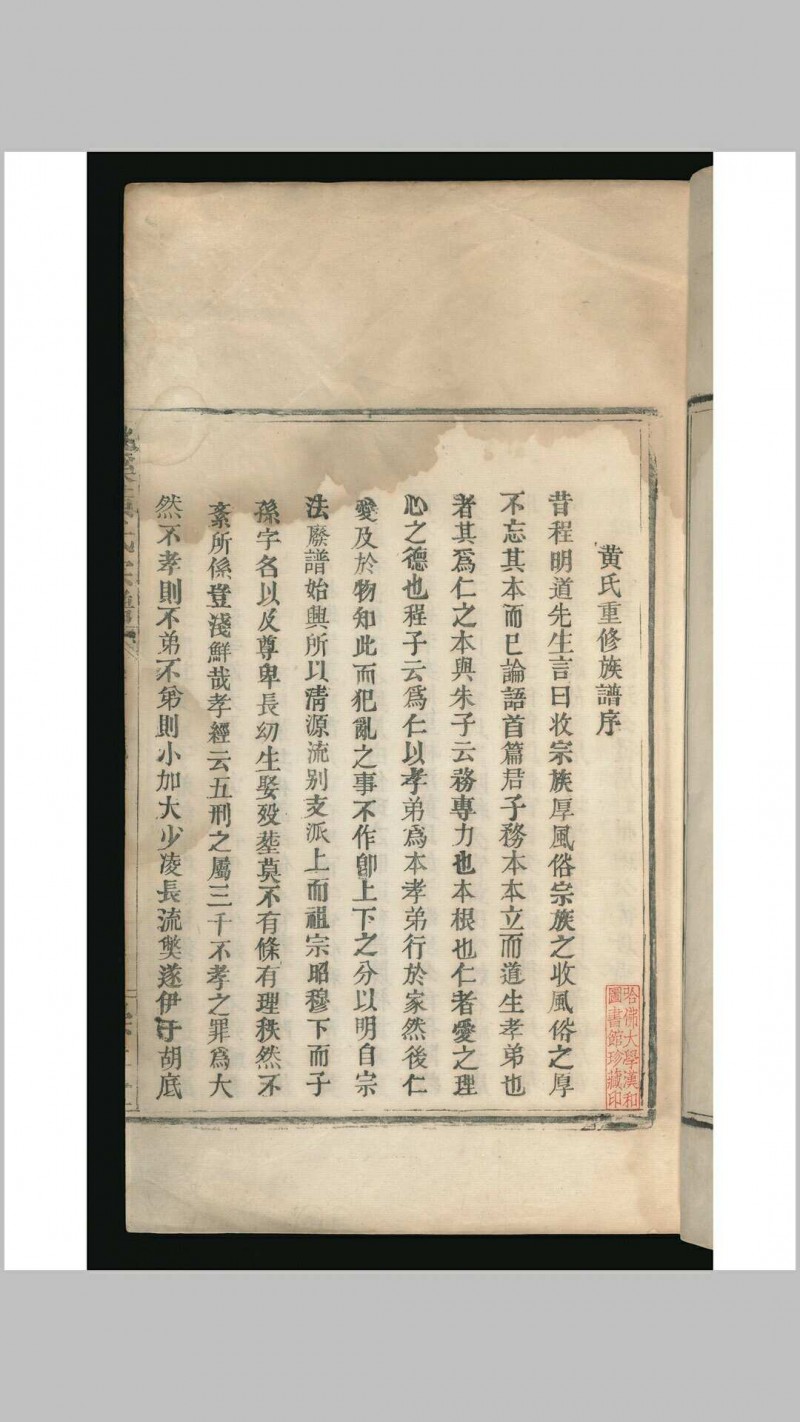 黄氏重修族譜序
昔程明道先生言曰收宗族厚風俗宗族之收風俗之厚
不忘其本而已論語首篇君子務本本立而道生孝弟也
者其爲仁之本與朱子云務專力也本根也仁者愛之理
心之德也程子云爲仁以孝弟爲本孝弟行於家然後仁
愛及於物知此而犯亂之事不作卽上下之分以明自宗
法廢譜始興所以清源流别支派上而祖宗昭穆下而子
孫字名以及尊卑長幼生娶殁塟莫不有條有理秩然不
紊所係登淺鮮哉孝經云五刑之屬三千不孝之罪爲大
然不孝則不弟不弟則小加大少凌長流獘遂伊于胡底
哈佛大學漢和
圖書館珍藏印